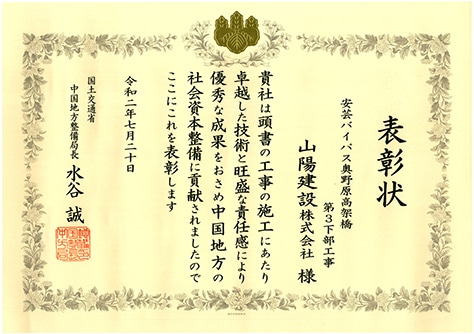 表彰状
安芸バイパス奥野原高架橋
第3下部工事
山陽建設株式会社 様
貴社は頭書の工事の施工にあたり
卓越した技術と旺盛な責任感により
優秀な成果をおさめ中国地方の
社会資本整備に貢献されましたので
ここにこれを表彰します
令和二年七月二十日
国土交通省
中国地方整備局長 水谷 誠